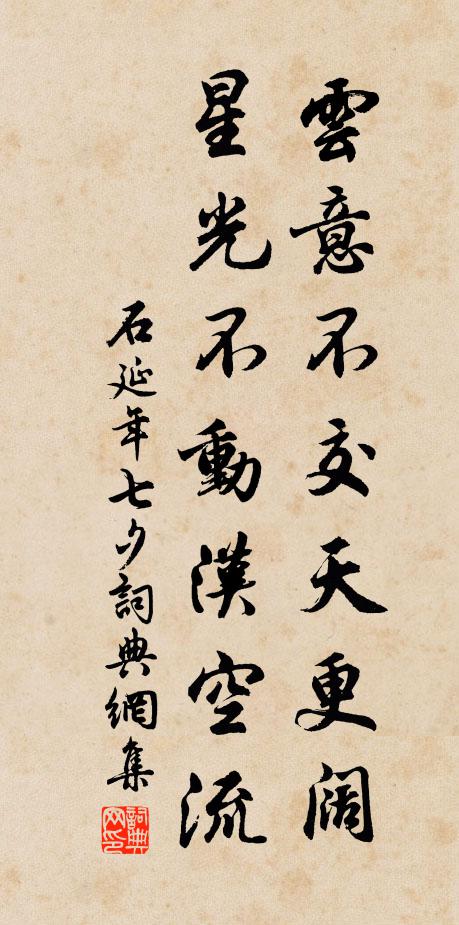 雲意不交天更闊
星光不動漢空流
石延年七夕詞典網集
詞典網印